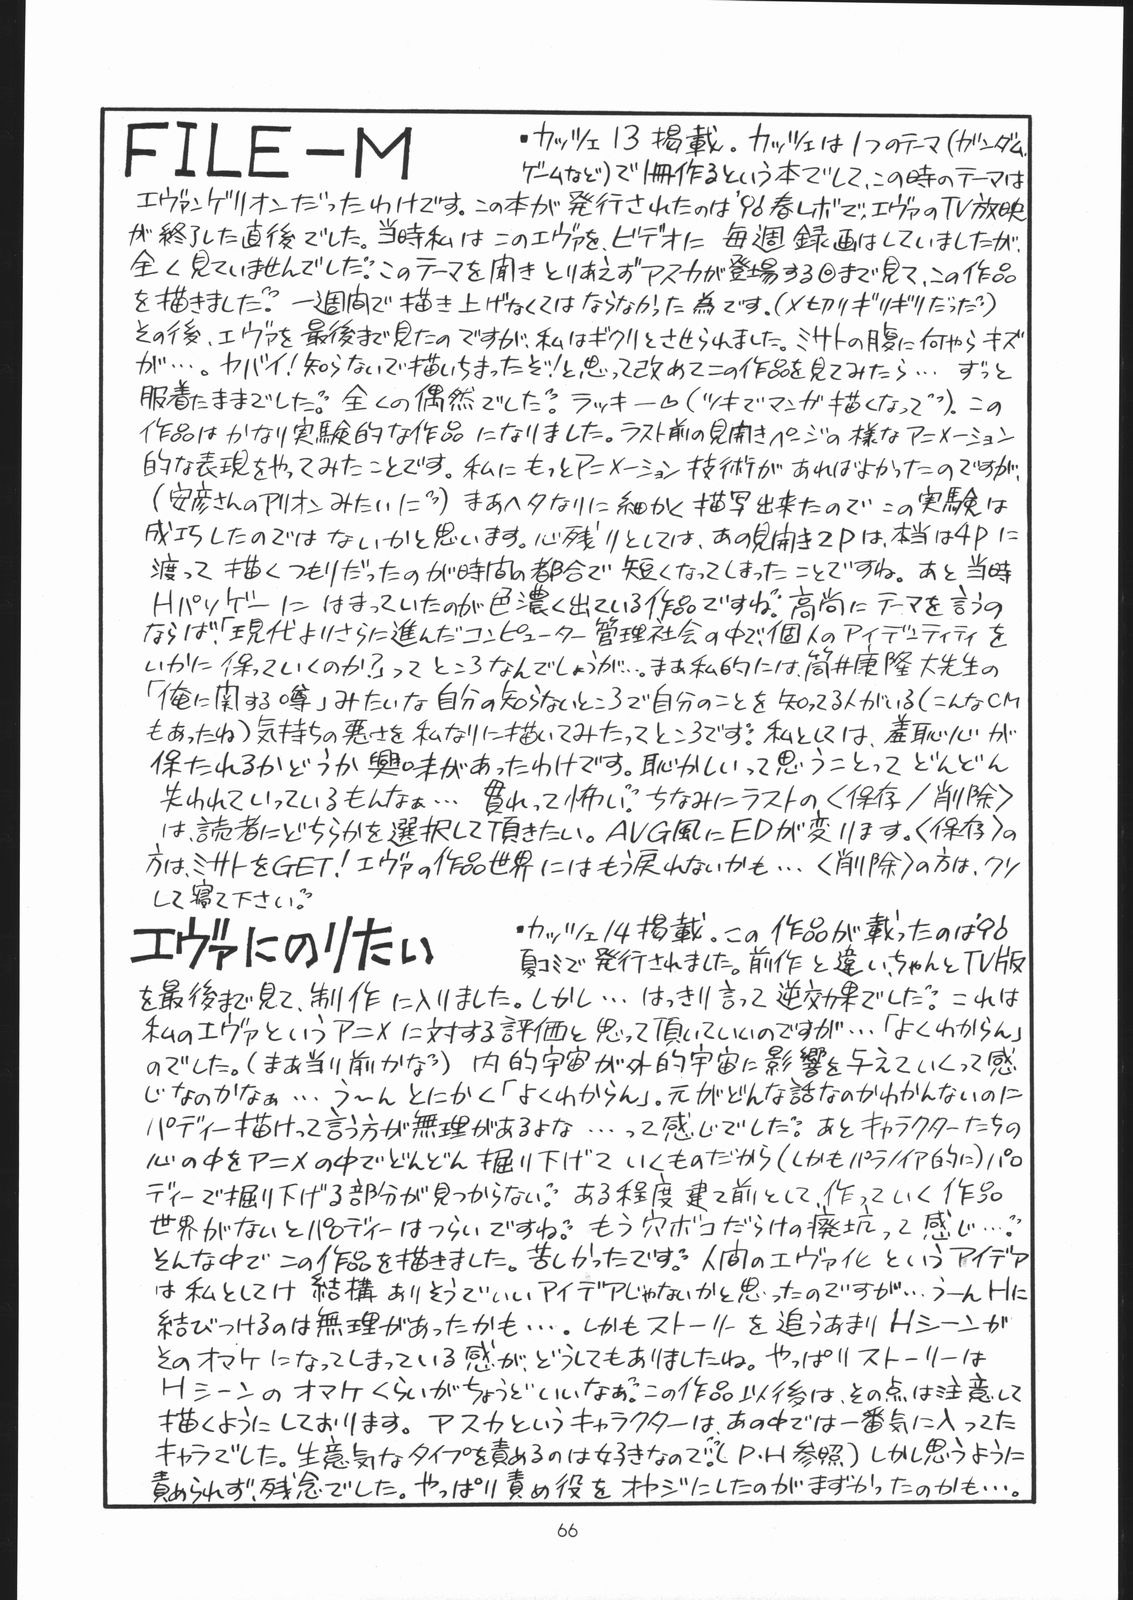 FILE-M
・カッツェ13掲載。カッツェは1つのテーマ(ガンダム、
ゲームなど)で1冊作るという本でして、この時のテーマは
エヴァンゲリオンだったわけです。この本が発行されたのは'96春レボで、エヴァのTV放映
が終了した直後でした。当時私はこのエヴァを、ビデオに毎週録画はしていましたが、
全く見ていませんでした。このテーマを聞きとりあえずアスカが登場する回まで見て、この作品
を描きました。一週間で描き上げなくてはならなかった為です。(〆切りギリギリだった)
その後、エヴァを最後まで見たのですが、私はギクリとさせられました。ミサトの腹に何やらキズ
が…。ヤバイ!知らないで描いちまったぞ!と思って改めてこの作品を見てみたら…ずっと
服着たままでした。全くの偶然でした。ラッキー♡(ツキでマンガ描くなって)。この
作品はかなり実験的な作品になりました。ラスト前の見開きページの様なアニメーション
的な表現をやってみたことです。私にもっとアニメーション技術があればよかったのですが、
(安彦さんのアリオンみたいに)まあヘタなりに細かく描写出来たのでこの実験は
成巧したのではないかと思います。心残りとしては、あの見開き2Pは、本当は4Pに
渡って描くつもりだったのが時間の都合で短くなってしまったことですね。あと当時
Hパソゲーにはまっていたのが色濃く出ている作品ですね。高尚にテーマを言うの
ならば、「現代よりさらに進んだコンピューター管理社会の中で、個人のアイデンティティを
いかに保っていくのか?」ってところなんでしょうが…。まあ私的には、筒井康隆大先生の
「俺に関する噂」みたいな自分の知らないところで自分のことを知ってる人がいる(こんなCM
もあったね)気持ちの悪さを私なりに描いてみたってところです。私としては、羞恥心が
保たれるかどうか興味があったわけです。恥かしいって思うことってどんどん
失われていっているもんなぁ…慣れって怖い。ちなみにラストの〈保存/削除〉
は、読者にどちらかを選択して頂きたい。AVG風にEDが変ります。〈保存〉の
方は、ミサトをGET!エヴァの作品世界にはもう戻れないかも…〈削除〉の方は、クソ
して寝て下さい。
エヴァにのりたい
・カッツェ14掲載。この作品が載ったのは'96
夏コミで発行されました。前作と違い、ちゃんとTV版
を最後まで見て、制作に入りました。しかし…はっきり言って逆効果でした。これは
私のエヴァというアニメに対する評価と思って頂いていいのですが…「よくわからん」
のでした。(まあ当り前かな)内的宇宙が外的宇宙に影響を与えていくって感
じなのかなぁ…う〜んとにかく「よくわからん」。元がどんな話なのかわかんないのに
パロディー描けって言う方が無理があるよな…って感じでした。あとキャラクターたちの
心の中をアニメの中でどんどん掘り下げていくものだから(しかもパラノイア的に)パロ
ディーで掘り下げる部分が見つからない。ある程度建て前として、作っていく作品
世界がないとパロディーはつらいですね。もう穴ボコだらけの廃坑って感じ…。
そんな中でこの作品を描きました。苦しかったです。人間のエヴァ化というアイデア
は私としてけ結構ありそうでいいアイデアじゃないかと思ったのですが…うーんHに
結びつけるのは無理があったかも…。しかもストーリーを追うあまりHシーンが
そのオマケになってしまっている感が、どうしてもありましたね。やっぱりストーリーは
Hシーンのオマケくらいがちょうどいいなぁ。この作品以後は、その点は注意して
描くようにしております。アスカというキャラクターは、あの中では一番気に入ってた
キャラでした。生意気なタイプを責めるのは好きなので。(P・H参照)しかし思うように
責められず、残念でした。やっぱり責め役をオヤジにしたのがまずかったのかも…。
66